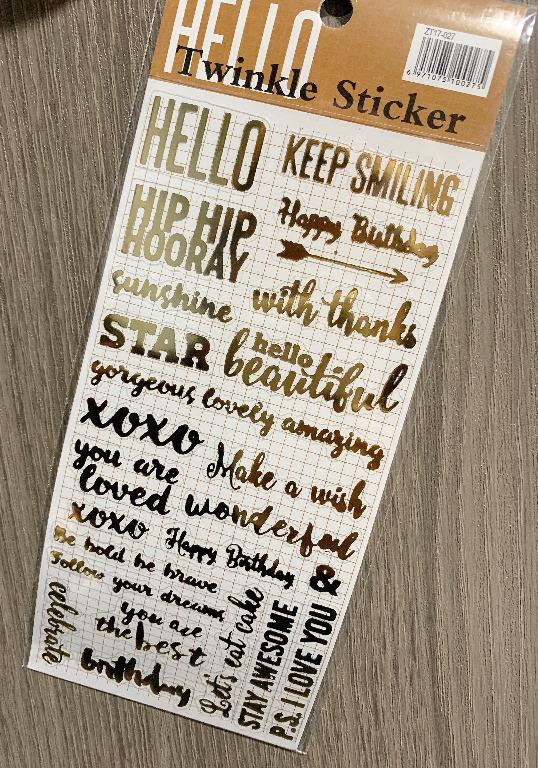 HELLO
ZT17-027
6971075100275
Twinkle Sticker
HELLO
KEEP SMILING
HIP HIP
HOORAY
Happy Birthday
sunshine
with thanks
STAR
hello
beautiful
gorgeous lovely amazing
xoxo
Make a wish
you are
loved wonderful
xoxo
Happy Birthday
&
Be bold be brave
Follow your dreams
celebrate
you are
the best
birthday
Let's eat cake
STAY AWESOME
P.S. I LOVE YOU